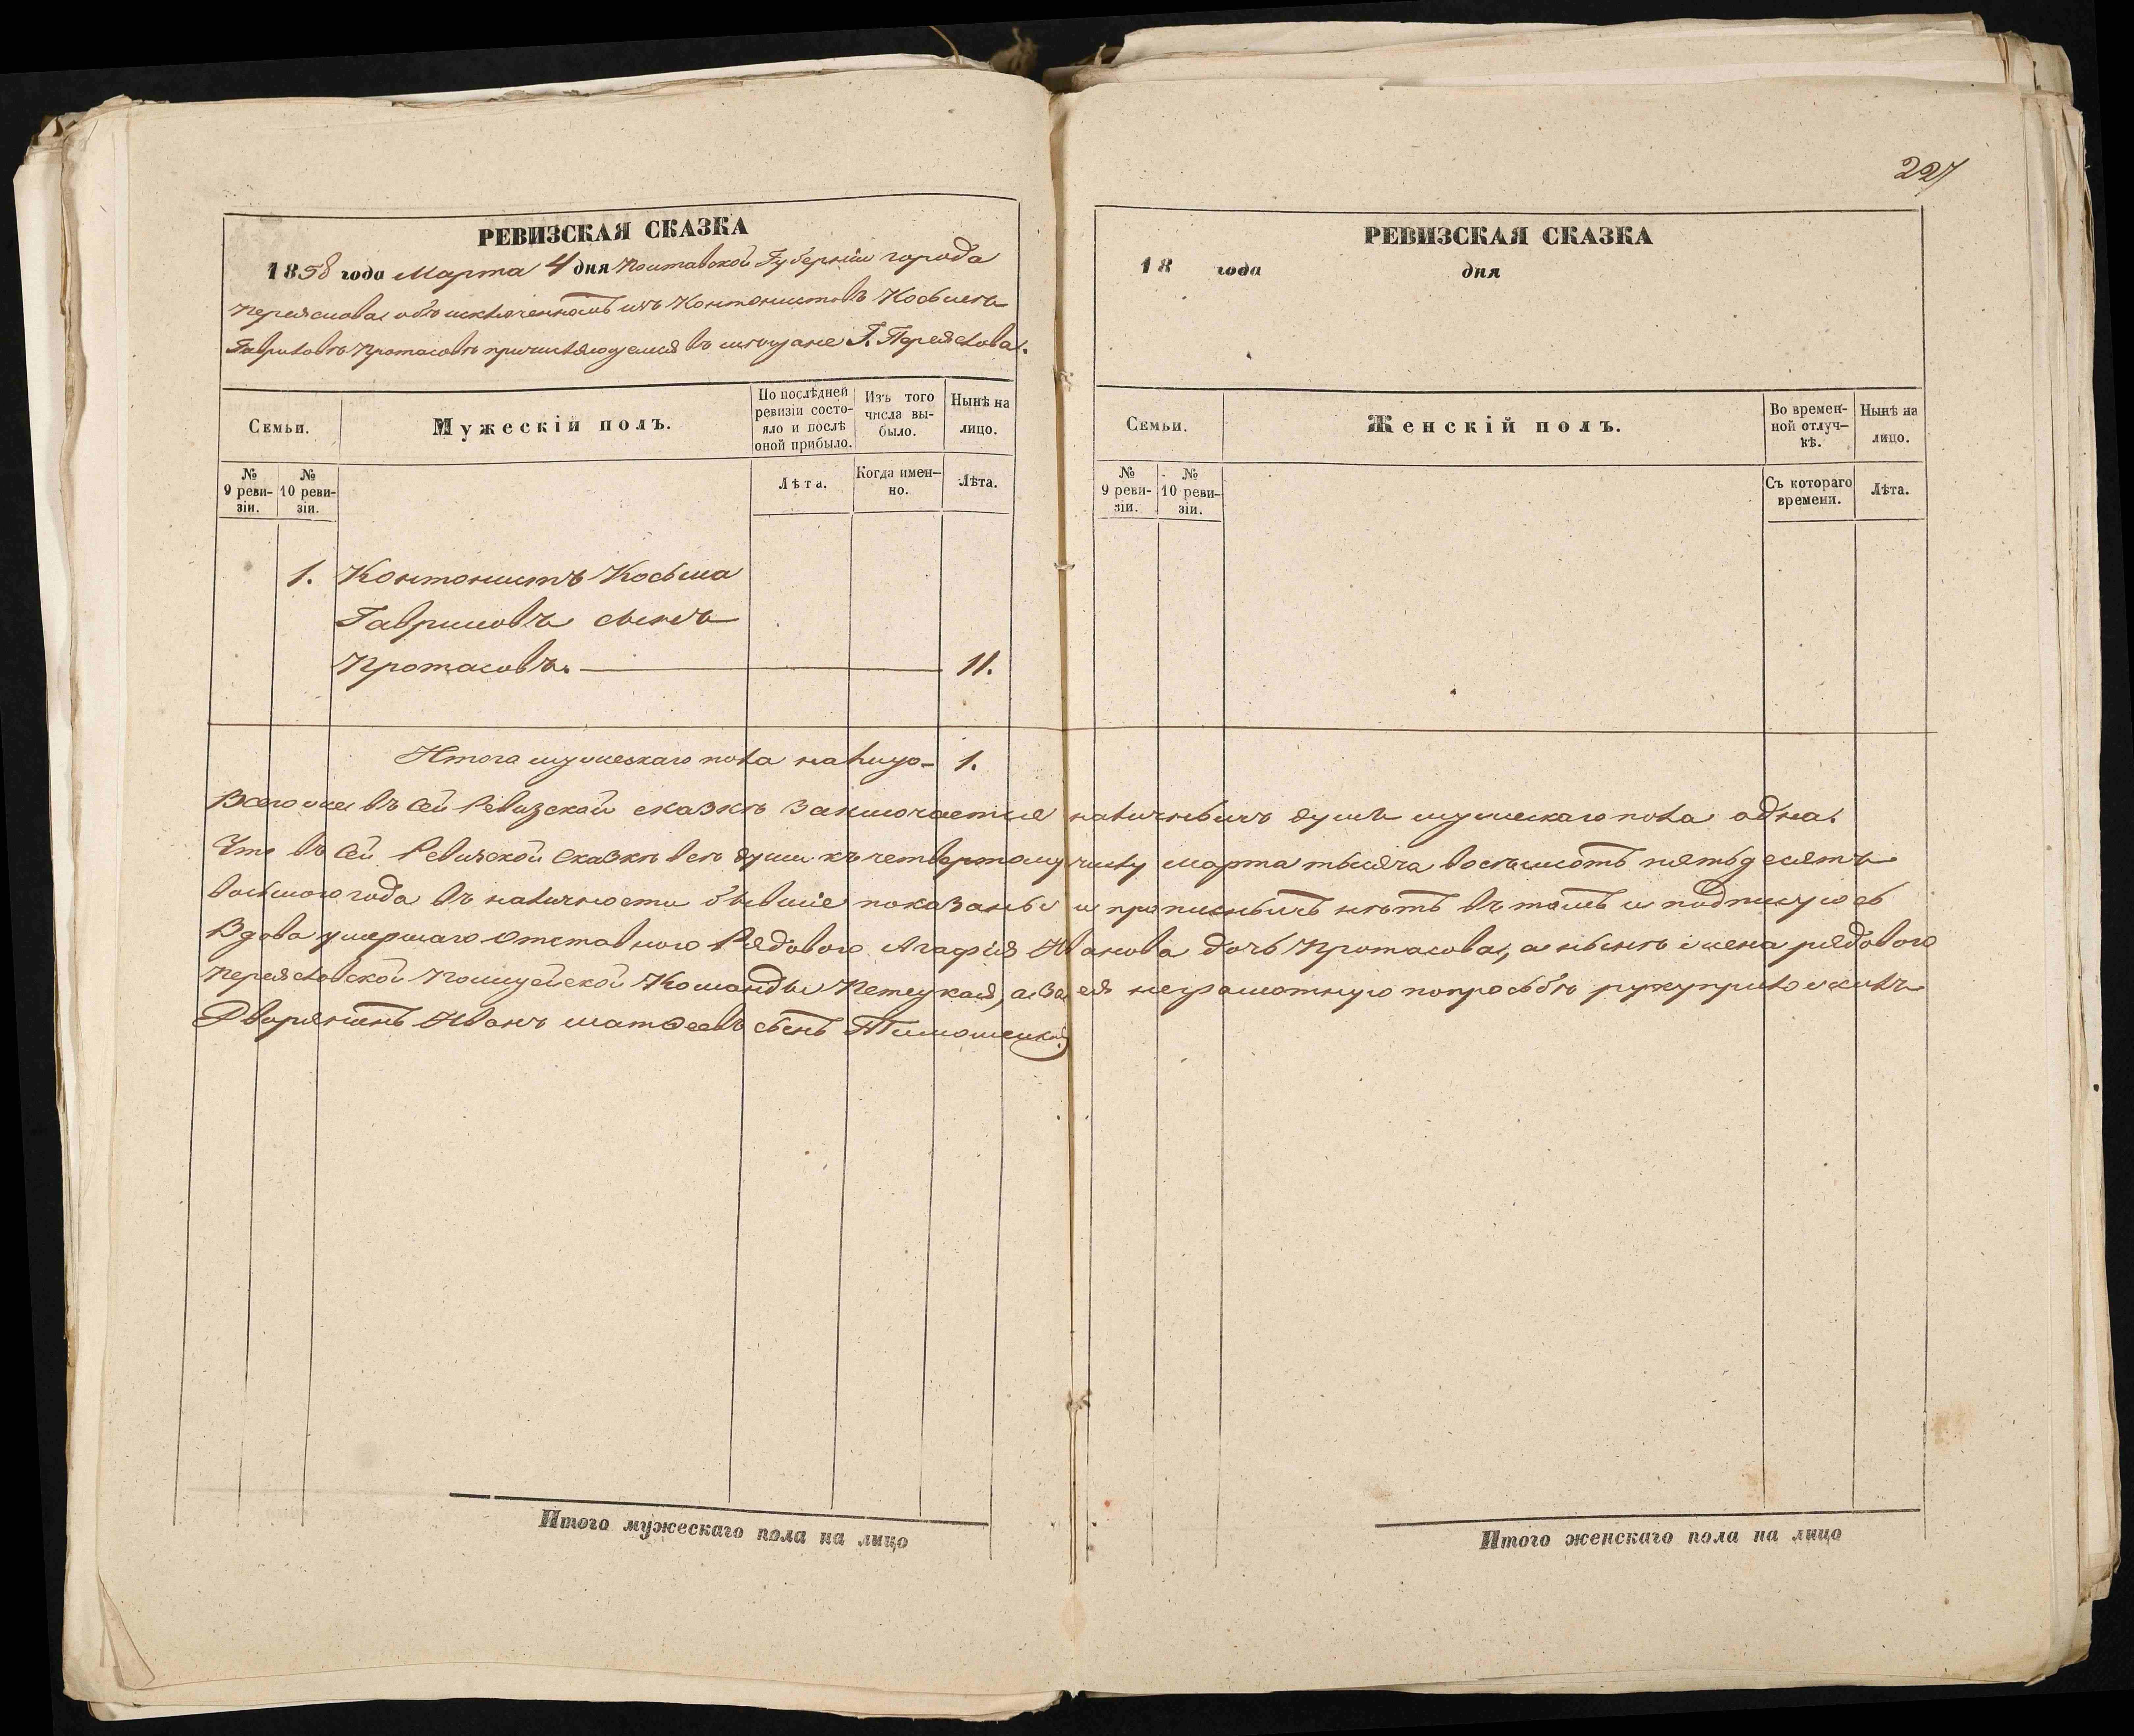 227
РЕВИЗСКАЯ СКАЗКА
1858 года Марта 4 дня Полтавской Губерніи города
Переяслова объ исключенномъ изъ Контонистовъ Косьмѣ
Гавриловѣ Протасовѣ причисляющемся въ мещане Г. Переяслова.
Семьи.
Мужескій полъ.
По послѣдней ревизіи состояло и послѣ оной прибыло.
Изъ того числа выбыло.
Нынѣ на лицо.
№ 9 ревизіи.
№ 10 ревизіи.
Лѣта.
Когда именно.
Лѣта.
1. Контонистъ Косьма
Гавриловъ сынъ
Протасовъ. 11.
Итого мужескаго пола налицо 1.
РЕВИЗСКАЯ СКАЗКА
18 года дня
Семьи.
Женскій полъ.
Во временной отлучкѣ.
Нынѣ на лицо.
№ 9 ревизіи.
№ 10 ревизіи.
Съ котораго времени.
Лѣта.
Всего же въ сей Ревизской сказкѣ заключается наличныхъ душъ мужескаго пола одна.
Что въ сей Ревизской сказкѣ всѣ души къ четвертому числу марта тысяча восемьсотъ пятьдесятъ
восьмого года въ наличности бывшіе показаны и прописныхъ нѣтъ въ томъ и подписуюсь
Вдова умершаго отставного Рядового Агафія Иванова дочь Протасова, а нынѣ жена рядового
Переясловской Полицейской Команды Петуцкая, а за ея неграмотную по просьбѣ руку приложилъ
Дворянинъ Иванъ матвеевъ сынъ Тимошецкій
Итого мужескаго пола на лицо
Итого женскаго пола на лицо